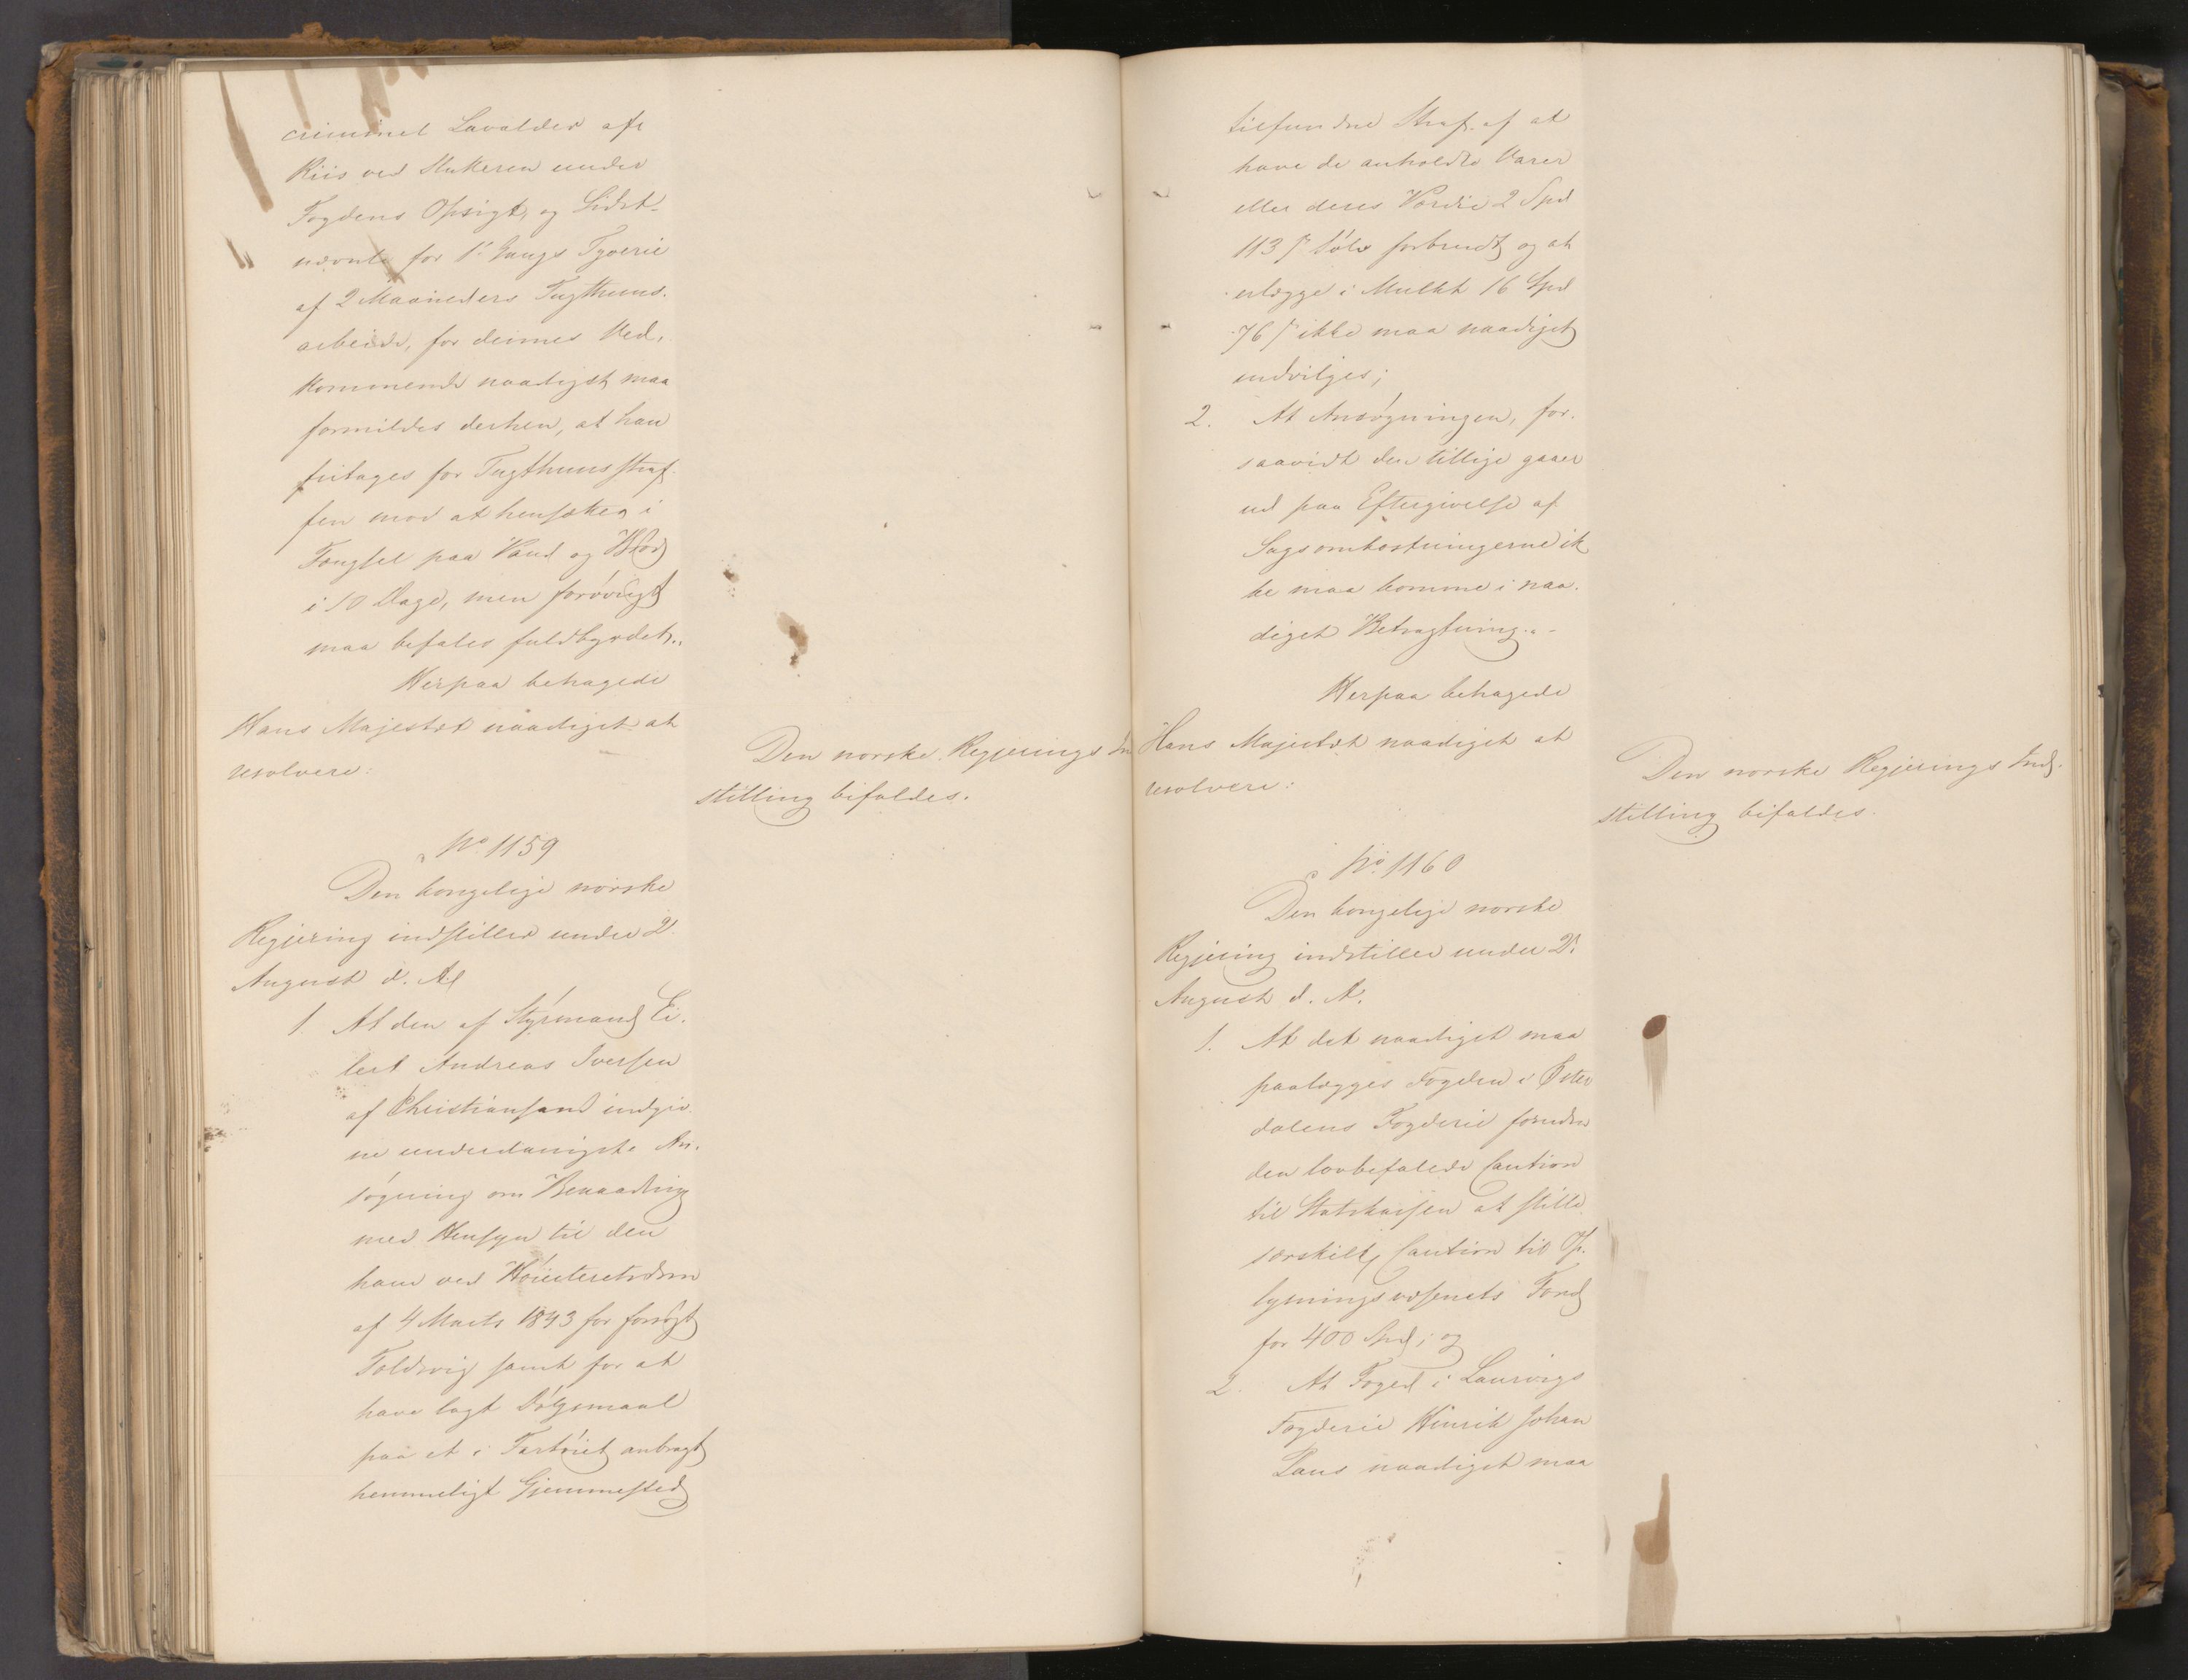 criminel Lavalder afs
Riis ved Slutteren under
Fogdens Opsigt, og Sidst-
nævnte for 1ste Gangs Tyverie
af 2 Maaneders Tugthuus-
arbeide, for dennes Ved-
kommende naadigst maa
formildes derhen, at han
fritages for Tugthuusstraf-
fen mod at hensættes i
Fængsel paa Vand og Brød
i 10 Dage, men forøvrigt
maa befales fuldbyrdet.
Herpaa behagede
Hans Majestæt naadigst at
resolvere:
Den norske Regjerings Ind
stilling bifaldes.
No 1159
Den kongelige norske
Regjering indstiller under 2
August d. A.
1. At den af Styrmand Ei-
lert Andreas Iversen
af Christiansand indgiv-
ne underdanigste An-
søgning om Benaading
med Hensyn til den
ham ved Høiesteretsdom
af 4 Marts 1843 for forsøgt
Toldsvig samt for at
have lagt Dølgsmaal
paa et i Fartøiet anbragt
hemmeligt Gjemmested
tilfundne Straf af at
have de anholdte Varer
eller deres Værdie 2 Spd
113 s Sølv forbrudt og at
erlægge i Mulkt 16 Spd
76 s ikke maa naadigst
indvilges;
2. At Ansøgningen, for-
saavidt den tillige gaaer
ud paa Eftergivelse af
Sagsomkostningerne ik
ke maa komme i naa-
digst Betragtning.
Herpaa behagede
Hans Majestæt naadigst at
resolvere:
Den norske Regjerings Ind-
stilling bifaldes.
No 1160
Den kongelige norske
Regjering indstiller under 2.
August d. A.
1. At det naadigst maa
paalægges Fogden i Øster
dalens Fogderie foruden
den lovbefalede Caution
til Statskassen at stille
særskilt Caution til Op-
lysningsvæsenets Fond
for 400 Spd; og
2. At Foged i Laurvigs
Fogderie Hinrik Johan
Paus naadigst maa